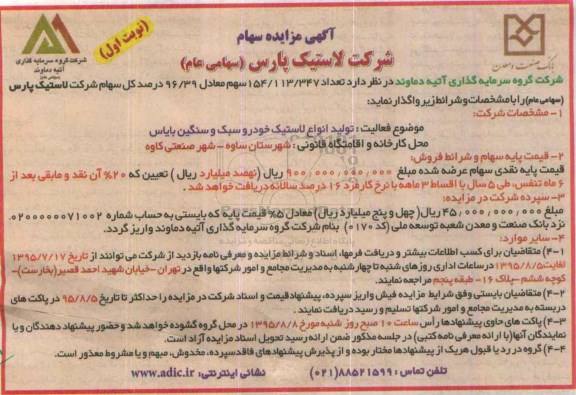 آگهی مزایده سهام
شرکت لاستیک پارس (سهامی عام)
(نوبت اول)
شرکت گروه سرمایه گذاری
آتیه دماوند
(سهامی عام)
بانک صنعت و معدن
شرکت گروه سرمایه گذاری آتیه دماوند در نظر دارد تعداد ۱۵۴/۱۱۳/۳۴۷ سهم معادل ۹۶/۳۹ درصد کل سهام شرکت لاستیک پارس
(سهامی عام) را با مشخصات و شرائط زیر واگذار نماید:
۱- مشخصات شرکت:
موضوع فعالیت : تولید انواع لاستیک خودرو سبک و سنگین بایاس
محل کارخانه و اقامتگاه قانونی : شهرستان ساوه - شهر صنعتی کاوه
۲- قیمت پایه سهام و شرائط فروش:
قیمت پایه نقدی سهام عرضه شده مبلغ ۹۰۰,۰۰۰,۰۰۰,۰۰۰ ریال (نهصد میلیارد ریال ) تعیین که ۲۰% آن نقد و مابقی بعد از
۶ ماه تنفس، طی ۵ سال با اقساط ۳ ماهه با نرخ کارمزد ۱۶ درصد سالانه دریافت خواهد شد .
۳- سپرده شرکت در مزایده:
مبلغ ۴۵,۰۰۰,۰۰۰,۰۰۰ ریال( چهل و پنج میلیارد ریال) معادل ۵% قیمت پایه که بایستی به حساب شماره ۰۲۰۰۰۰۰۰۷۱۰۰۲
نزد بانک صنعت و معدن شعبه توسعه ملی (کد ۰۱۷۰) بنام شرکت گروه سرمایه گذاری آتیه دماوند واریز گردد.
۴- سایر موارد:
۴-۱) متقاضیان برای کسب اطلاعات بیشتر و دریافت فرمها، اسناد و شرائط مزایده و معرفی نامه بازدید از شرکت می توانند از تاریخ ۱۳۹۵/۷/۱۷
لغایت ۱۳۹۵/۸/۵ در ساعات اداری روزهای شنبه تا چهارشنبه به مدیریت مجامع و امور شرکتها واقع در تهران -خیابان شهید احمد قصیر(بخارست)-
کوچه ششم -پلاک ۱۶- طبقه پنجم مراجعه نمایند.
۴-۲) متقاضیان بایستی وفق شرایط مزایده فیش واریز سپرده، پیشنهاد قیمت و اسناد شرکت در مزایده را حداکثر تا تاریخ ۹۵/۸/۵ در پاکت های
دربسته به مدیریت مجامع و امور شرکتها تسلیم و رسید دریافت نمایند.
۴-۳) پاکت های حاوی پیشنهادها رأس ساعت ۱۰ صبح روز شنبه مورخ ۱۳۹۵/۸/۸ در محل گروه گشوده خواهد شد و حضور پیشنهاد دهندگان و یا
نمایندگان آنها (با ارائه معرفی نامه کتبی) در جلسه مذکور ضمن ارائه رسید تحویل اسناد مزایده آزاد است.
۴-۴) گروه در رد یا قبول هریک از پیشنهادها مختار بوده و از پذیرش پیشنهادهای فاقد سپرده، مخدوش، مبهم و یا مشروط معذور است.
تلفن تماس : ۸۸۵۲۱۵۹۹(۰۲۱) نشانی اینترنتی: www.adic.ir